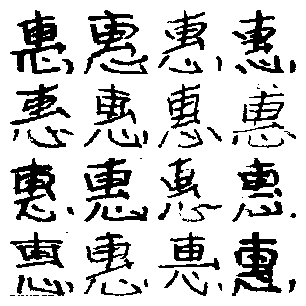 惠惠惠惠
惠惠惠惠
惠惠惠惠
惠惠惠惠